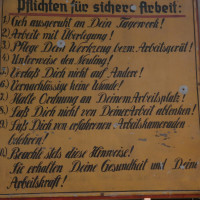 Pflichten für sichere Arbeit:
1) Geh ausgeruht an Dein Tagewerk!
2) Arbeite mit Überlegung!
3) Pflege Dein Werkzeug bezw. Arbeitsgerät!
4) Unterweise den Neuling!
5) Verlaß Dich nicht auf Andere!
6) Vernachlässige keine Wunde!
7) Halte Ordnung an Deinem Arbeitsplatz!
8) Laß Dich nicht von Deiner Arbeit ablenken!
9) Laß Dich von erfahrenen Arbeitskameraden
belehren!
Beachte stets diese Hinweise!
Sie erhalten Deine Gesundheit und Deine
Arbeitskraft!